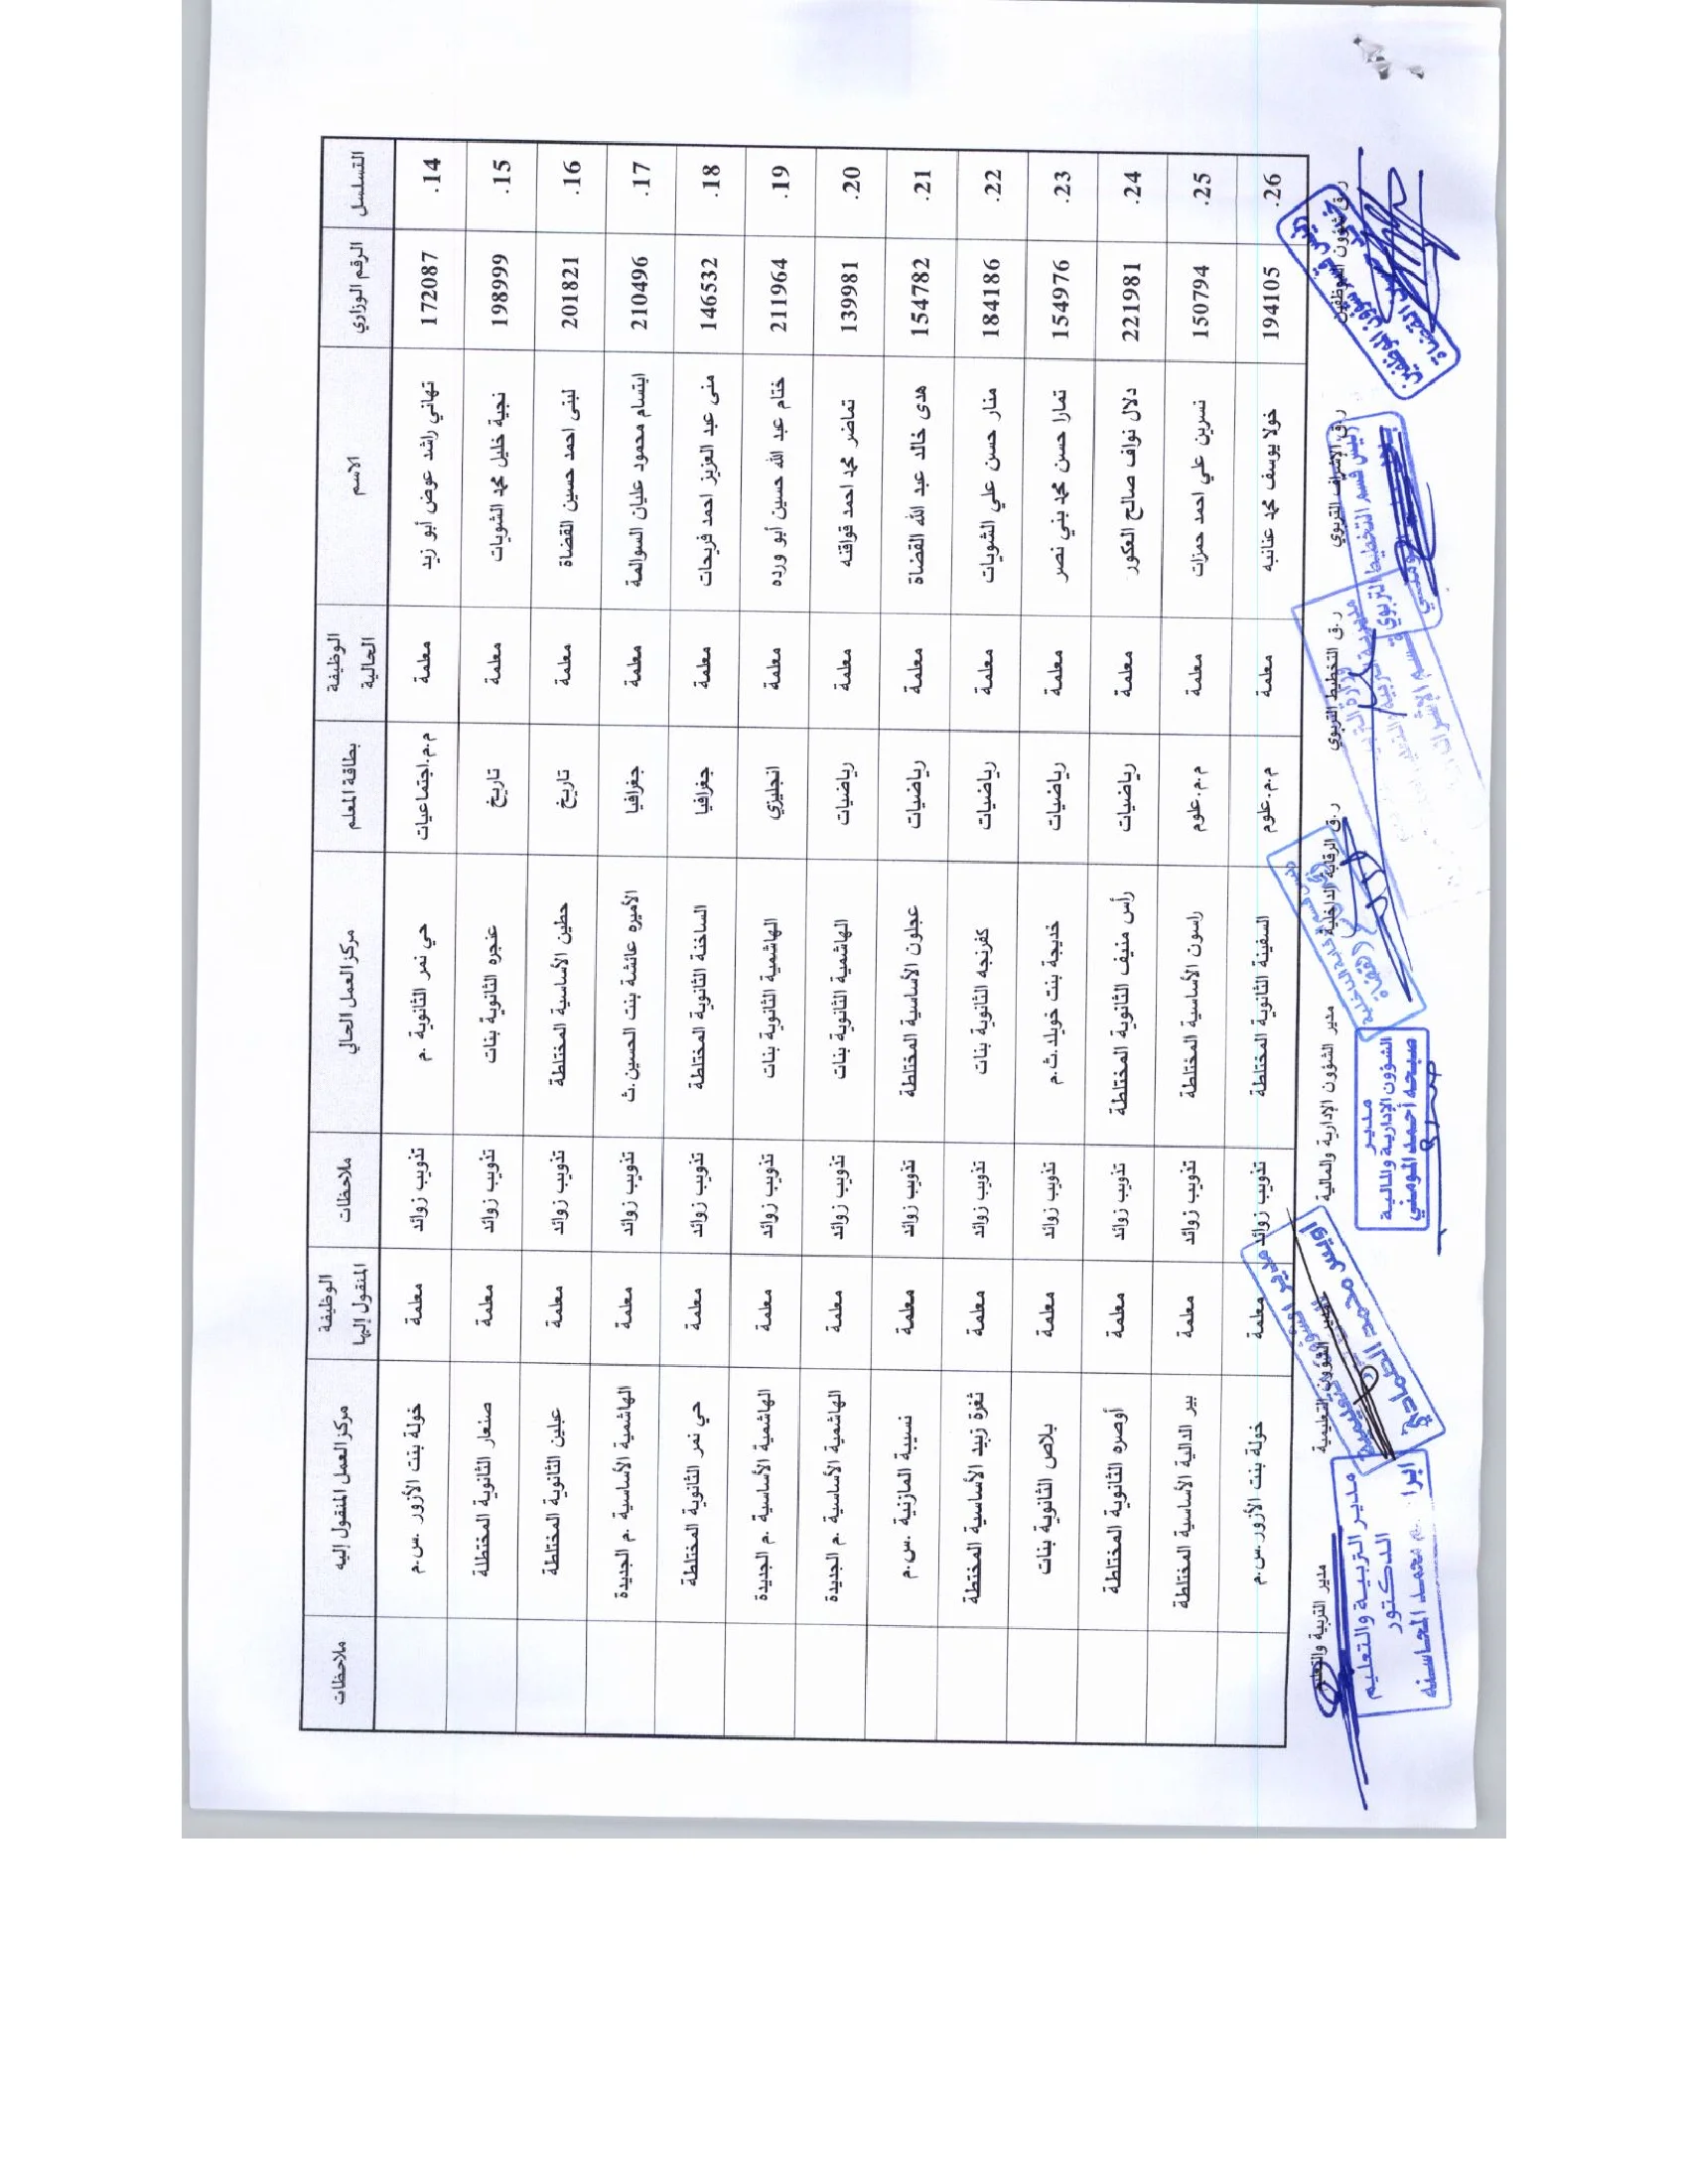 التسلسل الرقم الوزاري الاسم الوظيفة الحالية بطاقة المعلم مركز العمل الحالي ملاحظات الوظيفة المنقول إليها مركز العمل المنقول إليه ملاحظات
14. 172087 تهاني راشد عوض أبو زيد معلمة م.م.اجتماعيات حي نمر الثانوية .م تذويب زوائد معلمة خولة بنت الأزور .س.م
15. 198999 نجية خليل محمد الشويات معلمة تاريخ عنجره الثانوية بنات تذويب زوائد معلمة صنعار الثانوية المختطة
16. 201821 لبنى احمد حسين القضاة معلمة تاريخ حطين الأساسية المختلطة تذويب زوائد معلمة عبلين الثانوية المختلطة
17. 210496 ابتسام محمود عليان السوالمة معلمة جغرافيا الأميره عائشة بنت الحسين .ث تذويب زوائد معلمة الهاشمية الأساسية .م الجديدة
18. 146532 منى عبد العزيز احمد فريحات معلمة جغرافيا الساخنة الثانوية المختلطة تذويب زوائد معلمة حي نمر الثانوية المختلطة
19. 211964 ختام عبد الله حسين أبو ورده معلمة انجليزي الهاشمية الثانوية بنات تذويب زوائد معلمة الهاشمية الأساسية .م الجديدة
20. 139981 تماضر محمد احمد قواقنه معلمة رياضيات الهاشمية الثانوية بنات تذويب زوائد معلمة الهاشمية الأساسية .م الجديدة
21. 154782 هدى خالد عبد الله القضاة معلمة رياضيات عجلون الأساسية المختلطة تذويب زوائد معلمة نسيبة المازنية .س.م
22. 184186 منار حسن علي الشويات معلمة رياضيات كفرنجه الثانوية بنات تذويب زوائد معلمة ثغرة زبيد الأساسية المختطة
23. 154976 تمارا حسن محمد بني نصر معلمة رياضيات خديجة بنت خويلد .ث.م تذويب زوائد معلمة بلاص الثانوية بنات
24. 221981 دلال نواف صالح العكور معلمة رياضيات رأس منيف الثانوية المختلطة تذويب زوائد معلمة أوصره الثانوية المختلطة
25. 150794 نسرين علي احمد حمزات معلمة م.م.علوم راسون الأساسية المختلطة تذويب زوائد معلمة بير الدالية الأساسية المختلطة
26. 194105 خولا يوسف محمد عنانبه معلمة م.م.علوم السفينة الثانوية المختلطة تذويب زوائد معلمة خولة بنت الأزور .س.م
ر.ق شؤون الموظفين ر.ق الإشراف التربوي ر.ق التخطيط التربوي ر.ق الرقابة الداخلية مدير الشؤون الإدارية والمالية مدير الشؤون التعليمية مدير التربية والتعليم
رئيس قسم شؤون الموظفين
رئيس قسم التخطيط التربوي
مدير
الشؤون الإدارية والمالية
صبحه أحمد المومني
مدير التربية والتعليم
الدكتور
محمد المحاسنه